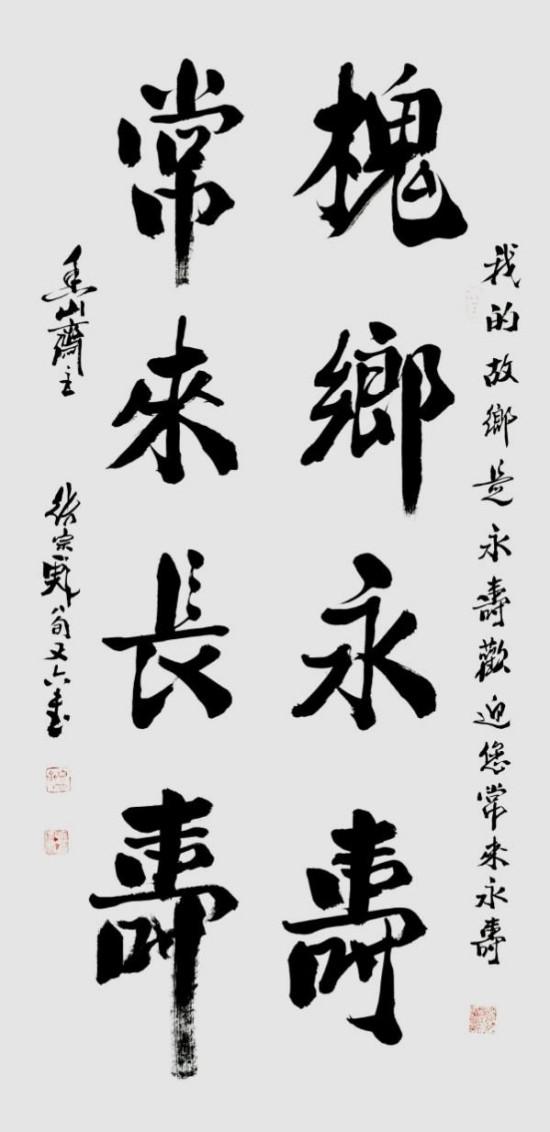 我的故鄉是永壽歡迎您常来永壽
槐鄉永壽
常來長壽
山齋主
張宗 旬又六書